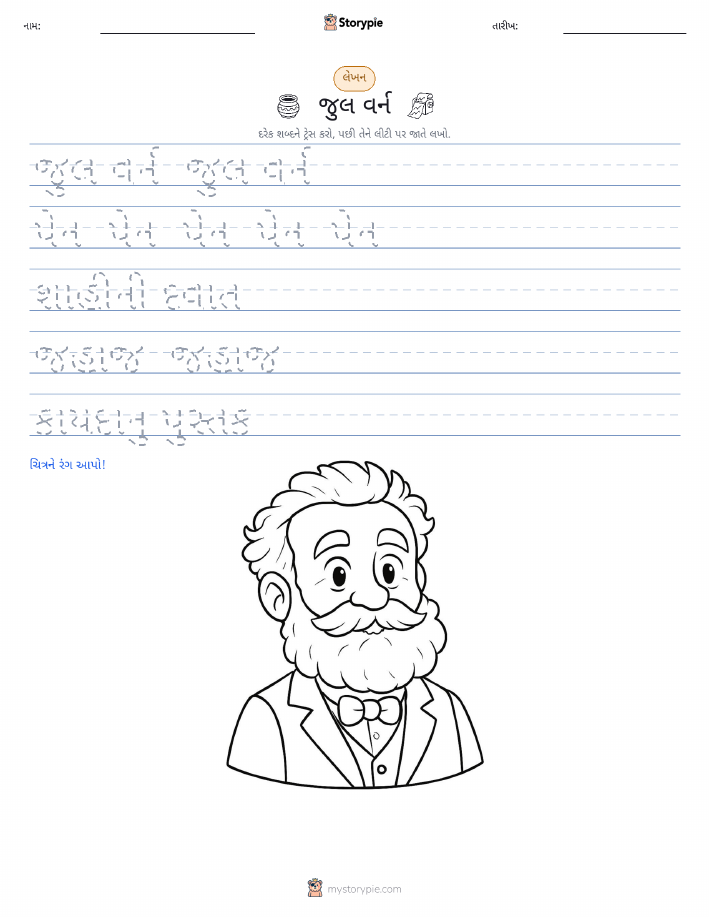 નામ:
Storypie
તારીખ:
લેખન
જુલ વર્ન
દરેક શબ્દને ટ્રેસ કરો, પછી તેને લીટી પર જાતે લખો.
જુલ વર્ન જુલ વર્ન
પેન પેન પેન પેન પેન
શાહીની દવાત
જહાજ જહાજ
કાયદાનુ પુસ્તક
ચિત્રને રંગ આપો!
mystorypie.com